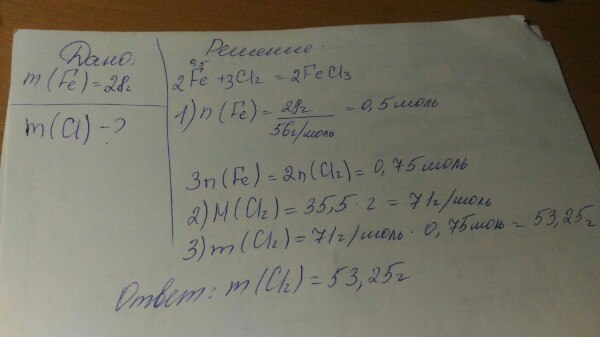 Дано:
m(Fe)=28г
m(Cl)-?
Решение:
0,5
2Fe+3Cl₂=2FeCl₃
1)n(Fe)=28г/56г/моль=0,5моль
3n(Fe)=2n(Cl₂)=0,75моль
2)M(Cl₂)=35,5·2=71г/моль
3)m(Cl₂)=71г/моль·0,75моль=53,25г
Ответ: m(Cl₂)=53,25г